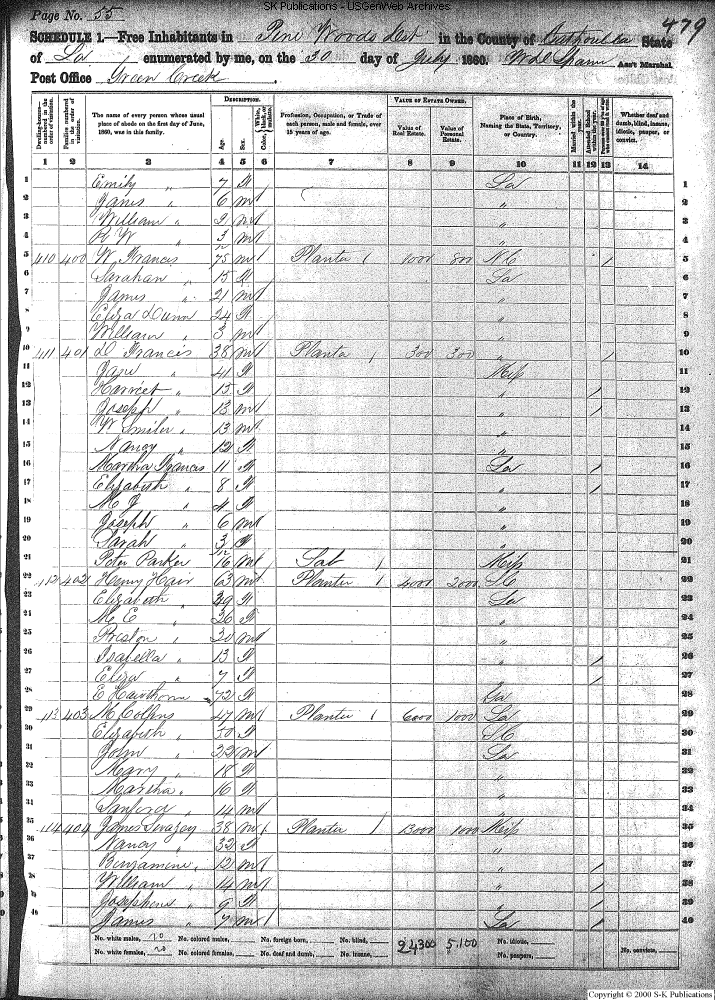 SK Publications - USGenWeb Archives
Page No. 55
479
SCHEDULE 1.—Free Inhabitants in Pine Woods Dist in the County of Catahoula State
of La enumerated by me, on the 30 day of July 1860. Ass't Marshal.
Post Office Green Creek.
Dwelling-houses—numbered in the order of visitation.
Families numbered in the order of visitation.
The name of every person whose usual place of abode on the first day of June, 1860, was in this family.
DESCRIPTION.
Age.
Sex.
Color, White, black, or mulatto.
Profession, Occupation, or Trade of each person, male and female, over 15 years of age.
VALUE OF ESTATE OWNED.
Value of Real Estate.
Value of Personal Estate.
Place of Birth, Naming the State, Territory, or Country.
Married within the year.
Attended School within the year.
Whether deaf and dumb, blind, insane, idiotic, pauper, or convict.
1 2 3 4 5 6 7 8 9 10 11 12 13 14
1 Emily " 7 F La 1
2 James " 6 m " 2
3 William " 2 m " 3
4 3 m " 4
5 410 400 W Francis 75 m Planter 1 1000 800 NC / 5
6 Sarahan " 15 F La 6
7 James " 21 m " 7
8 Eliza Dunn 24 F " 8
9 William " 3 m " 9
10 411 401 D Francis 38 m Planter 1 300 300 " / 10
11 Jane " 41 F Miss 11
12 Harriet " 15 F " / 12
13 Joseph " 13 m " / 13
14 13 m " 14
15 Nancy " 12 F " 15
16 Martha Francis 11 F La / 16
17 Elizabeth " 8 F " / 17
18 M J " 4 F " 18
19 Joseph " 6 m " 19
20 Sarah " 3 F " 20
21 Peter Parker 16 m Lab 1 Miss 21
22 412 402 Henry Hair 63 m Planter 1 4000 2000 SC 22
23 Elizabeth " 39 F La 23
24 M E " 26 F " 24
25 Preston " 20 m " 25
26 Isabella " 13 F " / 26
27 Eliza " 7 F " / 27
28 E Hawthorne 72 F Ga 28
29 413 403 M Coffey 47 m Planter 1 6000 1000 La 29
30 Elizabeth " 30 F SC 30
31 John " 22 m La 31
32 Mary " 18 F " 32
33 Martha " 16 F " 33
34 Sanford " 14 m " 34
35 414 404 James 38 m Planter 1 13000 1000 Miss 35
36 Nancy " 32 F " 36
37 Benjamine " 12 m " / 37
38 William " 14 m " / 38
39 Josephene " 9 F " / 39
40 James " 7 m La / 40
No. white males, No. colored males, No. foreign born, No. blind, 24300 5.100 No. idiotic,
No. white females, 20 No. colored females, No. deaf and dumb, No. insane, No. paupers, No. convicts,
Copyright © 2000 S-K Publications